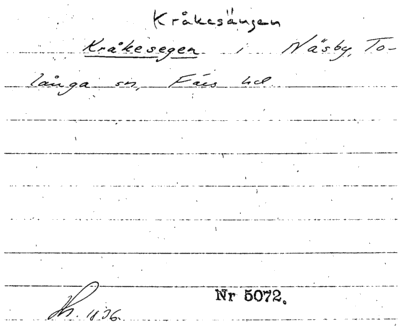 Kråkesängen
Kråkesegen i Näsby, To-
långa sn, Färs hd.
Nr 5072.
1936.